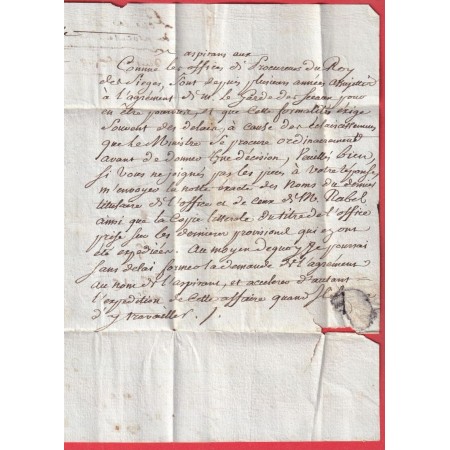 aspirans aux
Comme les offices de Procureurs du Roy
des Sieges, sont depuis plusieurs années assujettis
à l'agrément de M. le Garde des Sceaux pour
en être pourvu, et que cette formalité exige
souvent des delais, à cause des éclaircissemens
que le Ministre se procure ordinairement
avant de donner une décision, Veuillés bien,
si vous ne joignés pas les pieces à votre réponse,
m'envoyer la notte exacte des noms du dernier
titulaire de l'office et de ceux de M. Rabel
ainsi que la Copie litterale du titre de l'office
prise sur les dernieres provisions qui en ont
été expediées. Au moyen de quoy je pourrai
sans delai former la demande de l'agrement
au nom de l'aspirant, et accelerer d'autant
l'expedition de cette affaire quand
d'y travailler.